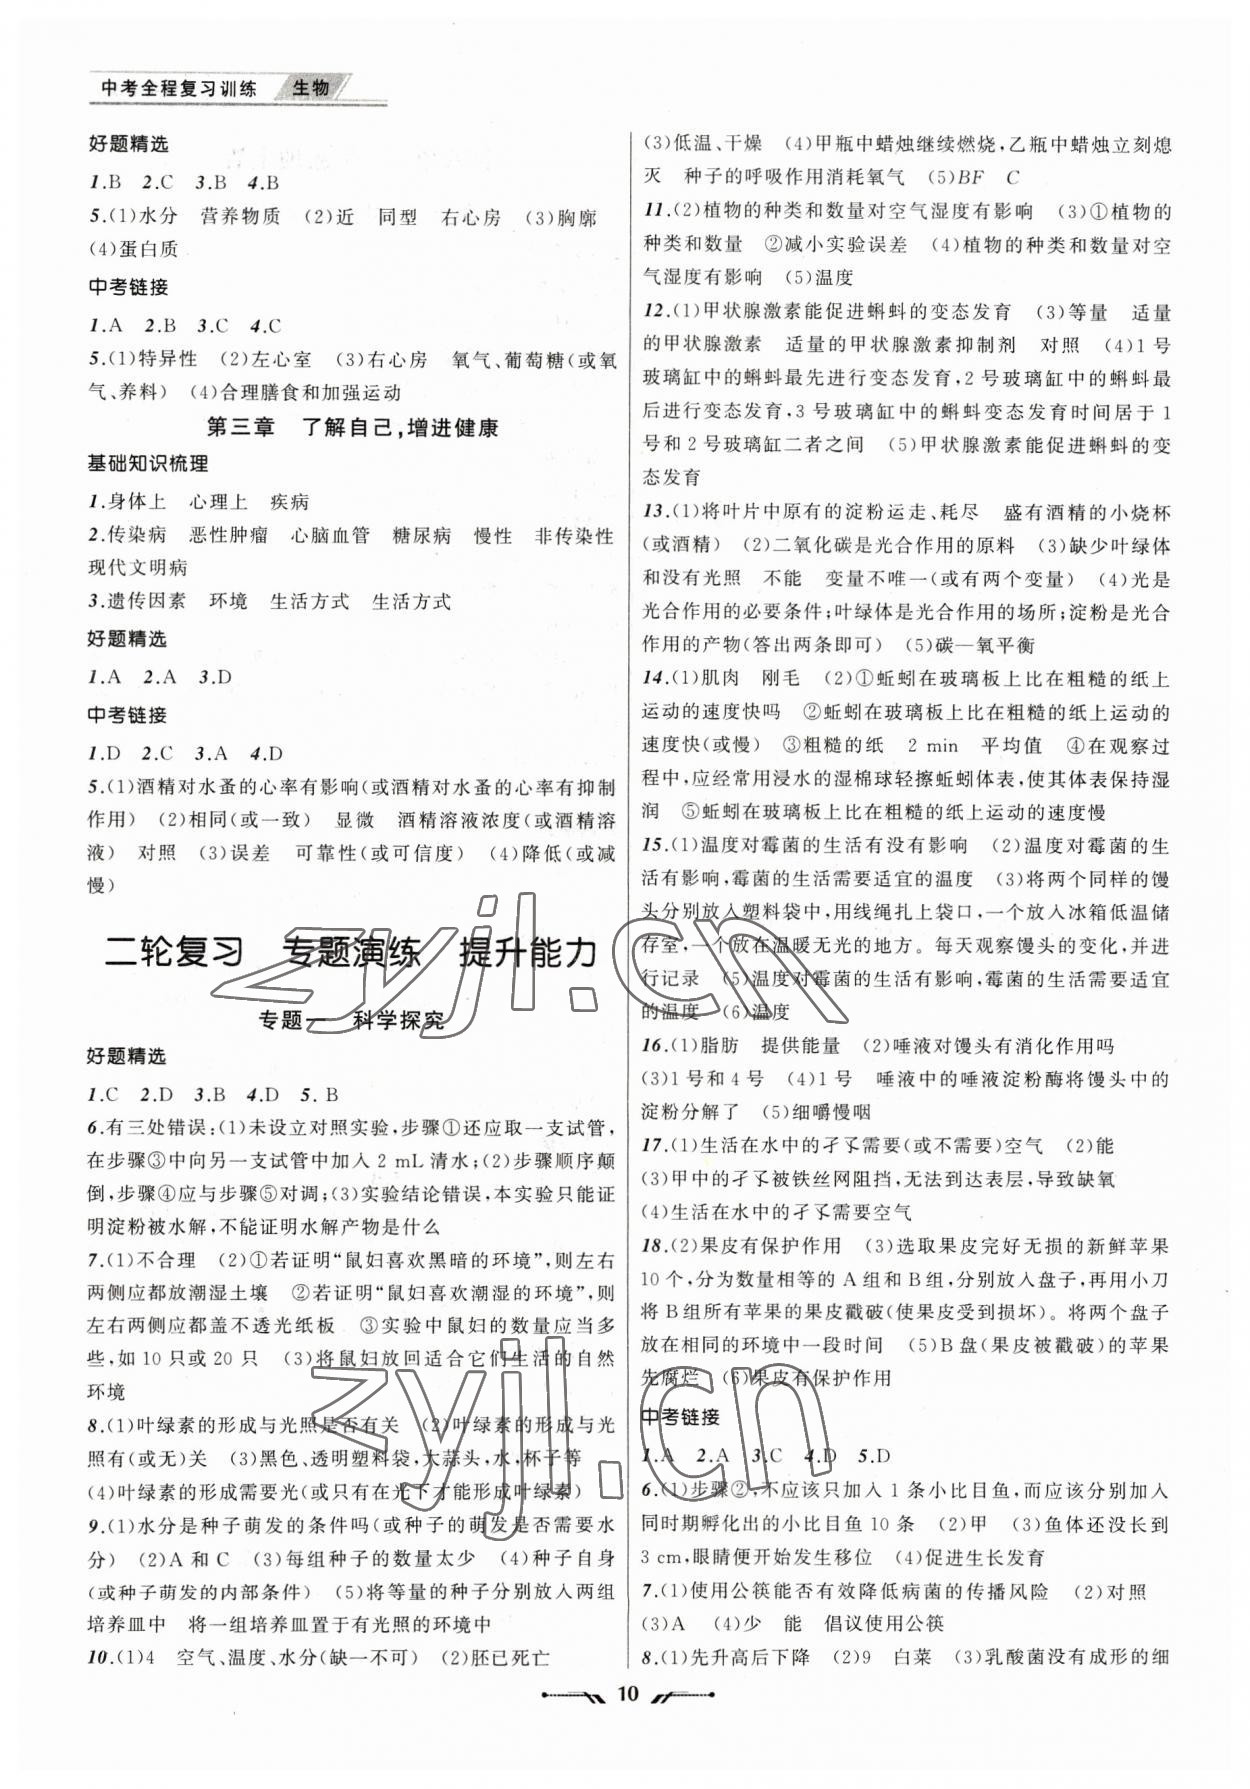 中考全程复习训练 生物
好题精选
1.B 2.C 3.B 4.B
5.(1)水分 营养物质 (2)近 同型 右心房 (3)胸廓
(4)蛋白质
中考链接
1.A 2.B 3.C 4.C
5.(1)特异性 (2)左心室 (3)右心房 氧气、葡萄糖(或氧
气、养料) (4)合理膳食和加强运动
第三章 了解自己,增进健康
基础知识梳理
1.身体上 心理上 疾病
2.传染病 恶性肿瘤 心脑血管 糖尿病 慢性 非传染性
现代文明病
3.遗传因素 环境 生活方式 生活方式
好题精选
1.A 2.A 3.D
中考链接
1.D 2.C 3.A 4.D
5.(1)酒精对水蚤的心率有影响(或酒精对水蚤的心率有抑制
作用) (2)相同(或一致) 显微 酒精溶液浓度(或酒精溶
液) 对照 (3)误差 可靠性(或可信度) (4)降低(或减
慢)
二轮复习 专题演练 提升能力
专题一 科学探究
好题精选
1.C 2.D 3.B 4.D 5.B
6.有三处错误:(1)未设立对照实验,步骤①还应取一支试管,
在步骤③中向另一支试管中加入 2 mL 清水;(2)步骤顺序颠
倒,步骤④应与步骤⑤对调;(3)实验结论错误,本实验只能证
明淀粉被水解,不能证明水解产物是什么
7.(1)不合理 (2)①若证明“鼠妇喜欢黑暗的环境”,则左右
两侧应都放潮湿土壤 ②若证明“鼠妇喜欢潮湿的环境”,则
左右两侧应都盖不透光纸板 ③实验中鼠妇的数量应当多
些,如 10 只或 20 只 (3)将鼠妇放回适合它们生活的自然
环境
8.(1)叶绿素的形成与光照是否有关 (2)叶绿素的形成与光
照有(或无)关 (3)黑色、透明塑料袋,大蒜头,水,杯子等
(4)叶绿素的形成需要光(或只有在光下才能形成叶绿素)
9.(1)水分是种子萌发的条件吗(或种子的萌发是否需要水
分) (2)A 和 C (3)每组种子的数量太少 (4)种子自身
(或种子萌发的内部条件) (5)将等量的种子分别放入两组
培养皿中 将一组培养皿置于有光照的环境中
10.(1)4 空气、温度、水分(缺一不可) (2)胚已死亡
(3)低温、干燥 (4)甲瓶中蜡烛继续燃烧,乙瓶中蜡烛立刻熄
灭 种子的呼吸作用消耗氧气 (5)BF C
11.(2)植物的种类和数量对空气湿度有影响 (3)①植物的
种类和数量 ②减小实验误差 (4)植物的种类和数量对空
气湿度有影响 (5)温度
12.(1)甲状腺激素能促进蝌蚪的变态发育 (3)等量 适量
的甲状腺激素 适量的甲状腺激素抑制剂 对照 (4)1 号
玻璃缸中的蝌蚪最先进行变态发育,2 号玻璃缸中的蝌蚪最
后进行变态发育,3 号玻璃缸中的蝌蚪变态发育时间居于 1
号和 2 号玻璃缸二者之间 (5)甲状腺激素能促进蝌蚪的变
态发育
13.(1)将叶片中原有的淀粉运走、耗尽 盛有酒精的小烧杯
(或酒精) (2)二氧化碳是光合作用的原料 (3)缺少叶绿体
和没有光照 不能 变量不唯一(或有两个变量) (4)光是
光合作用的必要条件;叶绿体是光合作用的场所;淀粉是光合
作用的产物(答出两条即可) (5)碳—氧平衡
14.(1)肌肉 刚毛 (2)①蚯蚓在玻璃板上比在粗糙的纸上
运动的速度快吗 ②蚯蚓在玻璃板上比在粗糙的纸上运动的
速度快(或慢) ③粗糙的纸 2 min 平均值 ④在观察过
程中,应经常用浸水的湿棉球轻擦蚯蚓体表,使其体表保持湿
润 ⑤蚯蚓在玻璃板上比在粗糙的纸上运动的速度慢
15.(1)温度对霉菌的生活有没有影响 (2)温度对霉菌的生
活有影响,霉菌的生活需要适宜的温度 (3)将两个同样的馒
头分别放入塑料袋中,用线绳扎上袋口,一个放入冰箱低温储
存室,一个放在温暖无光的地方。每天观察馒头的变化,并进
行记录 (5)温度对霉菌的生活有影响,霉菌的生活需要适宜
的温度 (6)温度
16.(1)脂肪 提供能量 (2)唾液对馒头有消化作用吗
(3)1号和4号 (4)1号 唾液中的唾液淀粉酶将馒头中的
淀粉分解了 (5)细嚼慢咽
17.(1)生活在水中的孑孓需要(或不需要)空气 (2)能
(3)甲中的孑孓被铁丝网阻挡,无法到达表层,导致缺氧
(4)生活在水中的孑孓需要空气
18.(2)果皮有保护作用 (3)选取果皮完好无损的新鲜苹果
10 个,分为数量相等的 A 组和 B 组,分别放入盘子,再用小刀
将 B 组所有苹果的果皮戳破(使果皮受到损坏)。将两个盘子
放在相同的环境中一段时间 (5)B 盘(果皮被戳破)的苹果
先腐烂 (6)果皮有保护作用
中考链接
1.A 2.A 3.C 4.D 5.D
6.(1)步骤②,不应该只加入 1 条小比目鱼,而应该分别加入
同时期孵化出的小比目鱼 10 条 (2)甲 (3)鱼体还没长到
3 cm,眼睛便开始发生移位 (4)促进生长发育
7.(1)使用公筷能否有效降低病菌的传播风险 (2)对照
(3)A (4)少 能 倡议使用公筷
8.(1)先升高后下降 (2)9 白菜 (3)乳酸菌没有成形的细
10
zyjl.cn
zyjl.cn